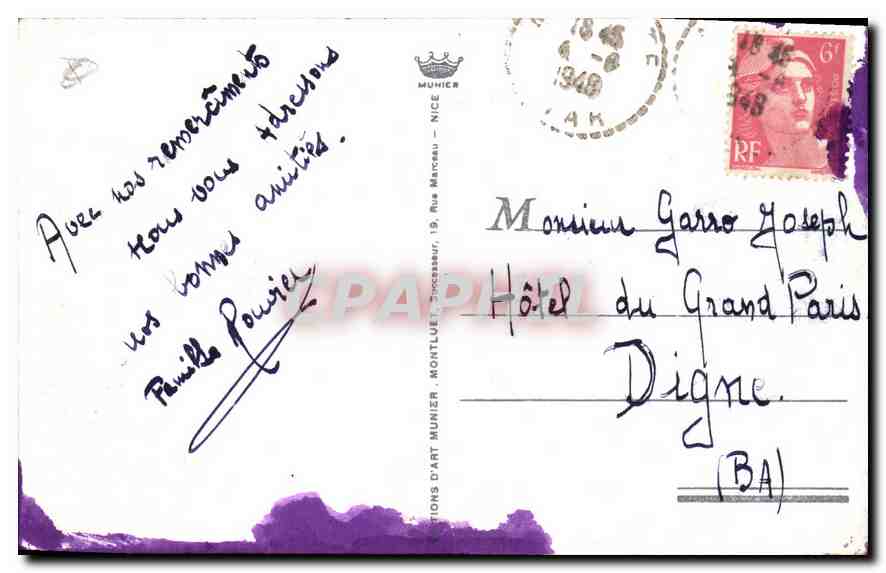 Avec nos remerciments
nous vous adressons
nos bonnes amitiés.
Famille Rouvier
MUNIER
TIONS D'ART MUNIER, MONTLUET, Successeur, 19, Rue Marceau — NICE
18 45
4 - 8
1948
VAR
18 45
6F
RF
Monsieur Garro Joseph
Hôtel du Grand Paris
Digne.
(BA)
CPAPHIL